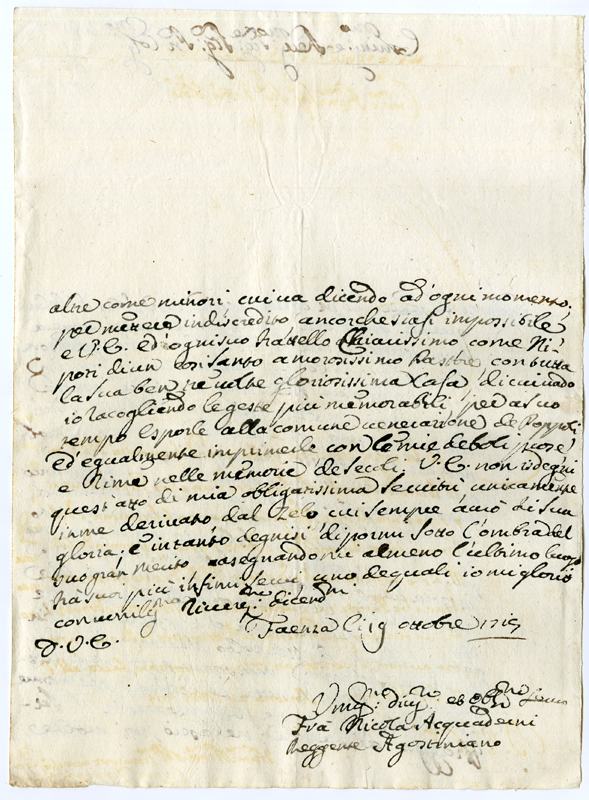 altre come minori cui va dicendo ad ogni momento,
per mettere in discredito ancorche siasi impossibile
e V.E. ed ogni suo fratello Chiarissimo come Ni-
poti di un così santo amorosissimo Pastre con tutta
la sua ben gloriosissima Casa, di cui vado
io racogliendo le geste più memorabili per a suo
tempo esporle alla comune venerazione de Poppoli
ed egualmente imprimerle con le mie deboli prose
e Rime nelle memorie de secoli. V.E. non isdegni
quest'atto di mia obligatissima servitù unicamente
in me derivato dal Zelo cui sempre avrò di sua
gloria; e intanto degnisi di pormi sotto l'ombra del
suo gran merito assegnandomi almeno l'ultimo luogo
frà suoi più infimi servi uno de quali io mi glorio
con umilis.mo dicend.mi
D.V.E.
Faenza li 19 ottobre
Um.mo div.mo ed obb.mo servo
Frà Nicola Acquaderni
Reggente Agostiniano